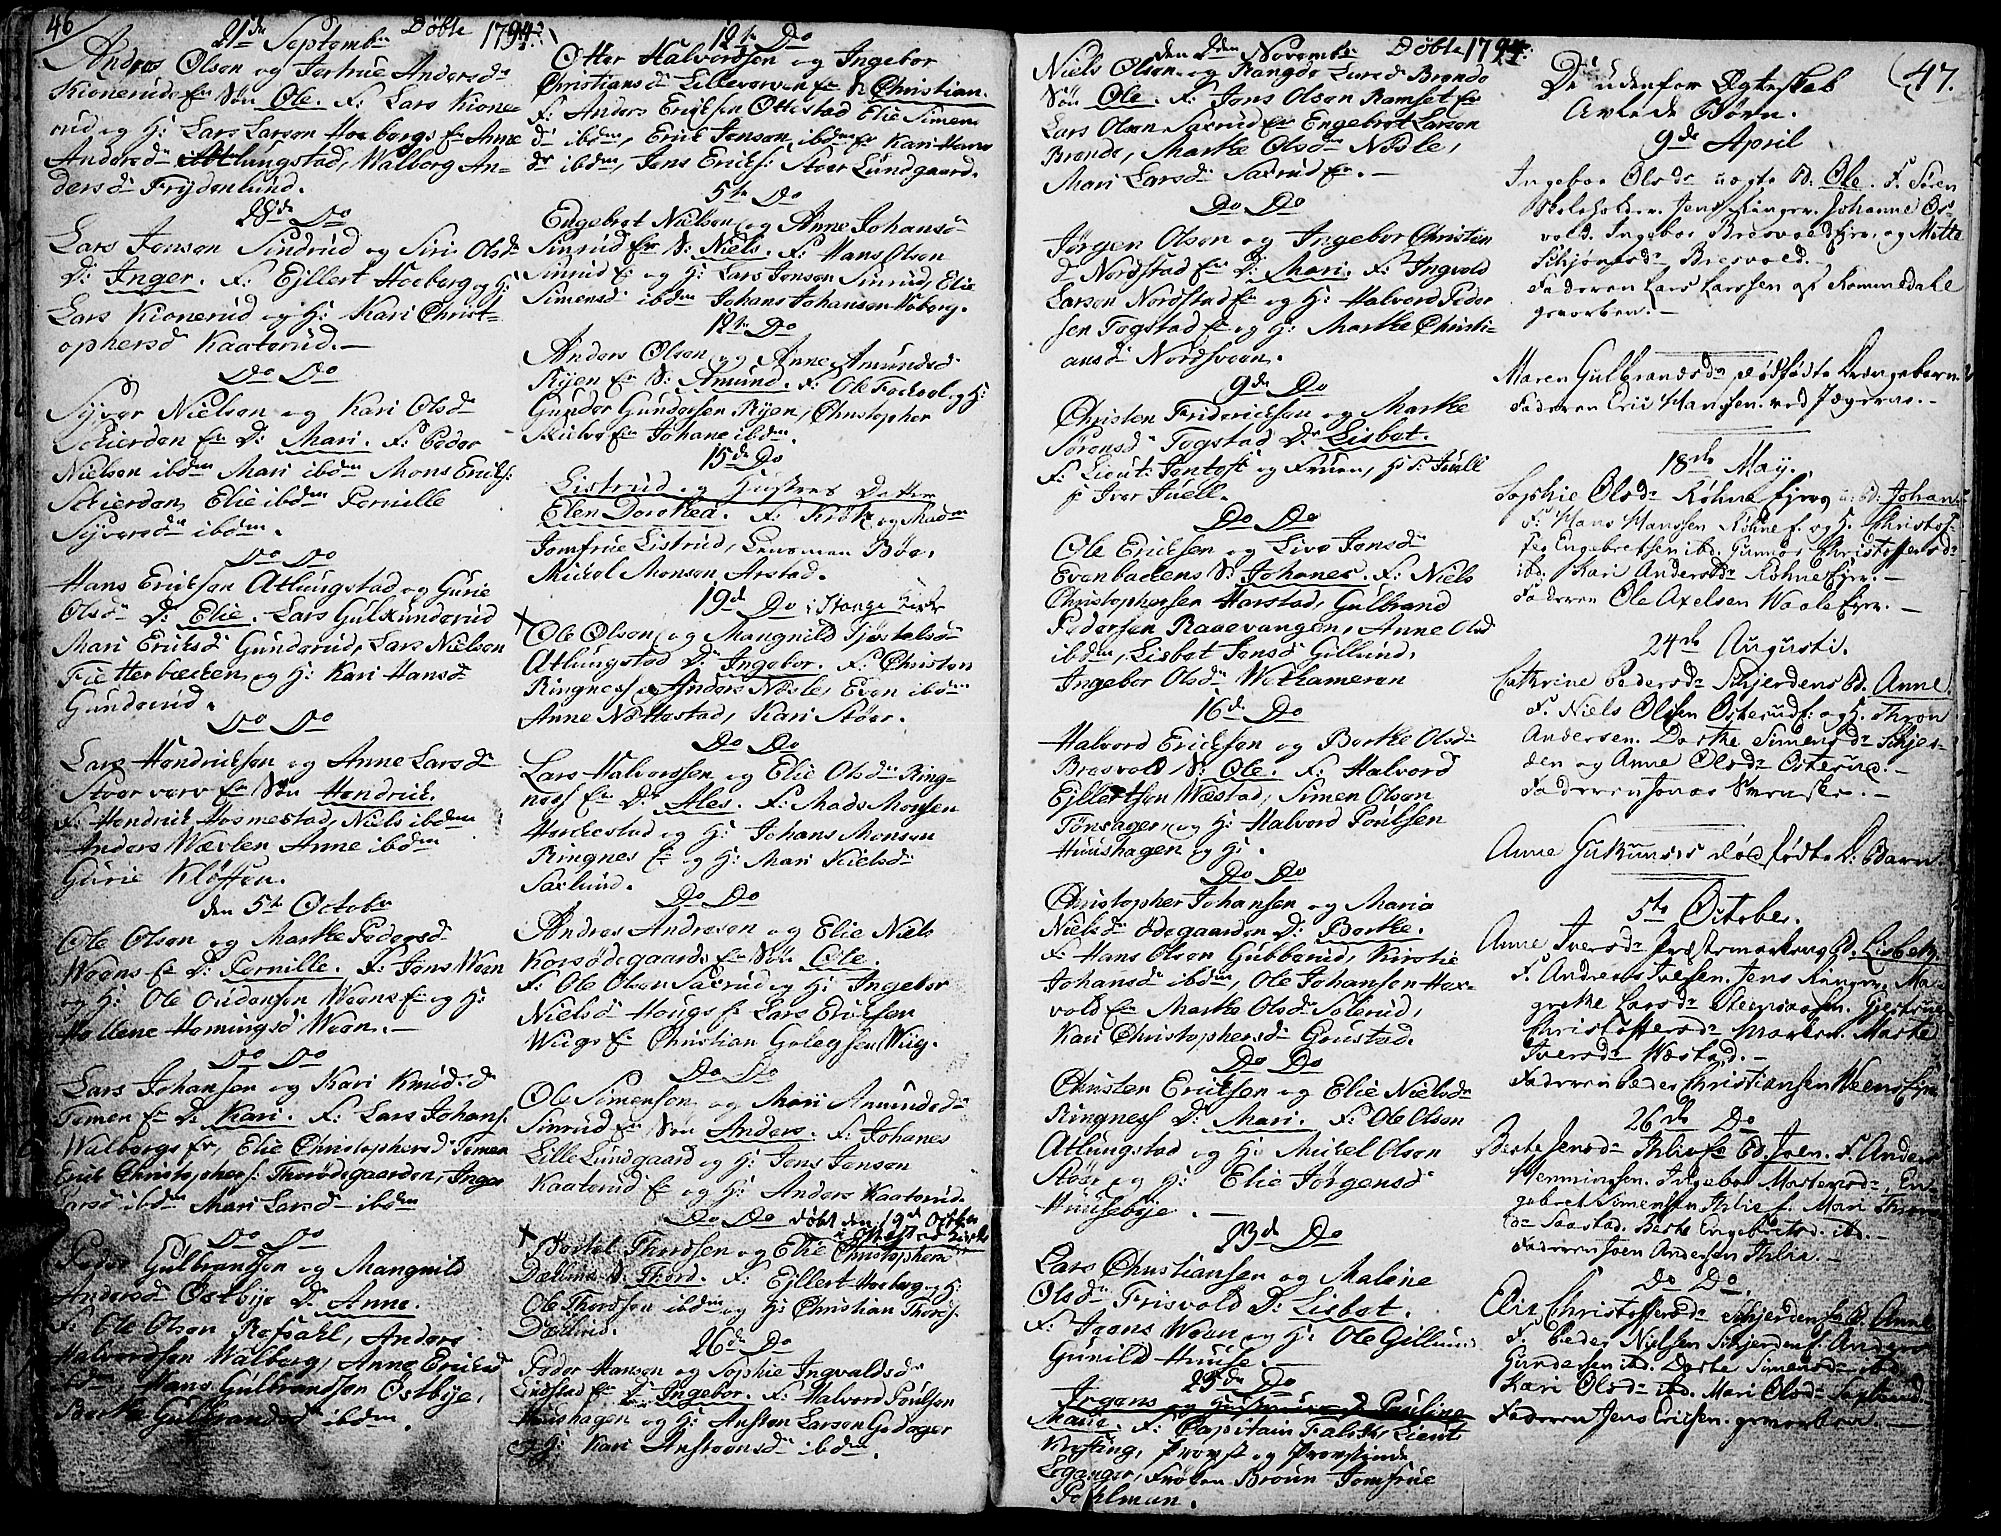 46
21de Septembr Døbte 1794.
Anders Olsen og Jertrue Andersdr
Kionerudc Er Søn Ole. F: Lars Kione-
rud og H: Lars Larsen Hoebergs Er Anne
Andersdr Atlungstad, Walborg An-
dersdr Frydenlund.
28de Do
Lars Jensen Sindrud og Siri Olsdr
D: Inger. F: Ejllert Hoeberg og H:
Lars Kionerud og H: Kari Christ-
ophersd Kaaterud.
Do Do
Syver Nielsen og Kari Olsdr
Skierden Er D: Mari. F: Peder
Nielsen ibdm Mari ibdm Mons Ericks:
Skierden, Elie ibdm Pernille
Syversdr ibdm.
Do Do
Hans Ericksen Atlungstad og Gurie
Olsdr D: Elie. Lars Gulkunderud
Mari Ericksd Gunderud, Lars Nielsen
Fietterbacken, og H: Kari Hansd
Gunderud.
Do Do
Lars Hendricksen og Anne Larsdr
Stoer verv Er Søn Hendrick.
F: Hendrick Hosmestad, Niels ibdm
Anders Wævlen Anne ibdm
Gurie Kløften.
den 5te Octobr
Ole Olsen og Marthe Pedersd
Weens Er D: Pernille. F: Jens Ween
og H: Ole Oudensen Weens Er og H:
Hellene Hemingsd Ween.
Do Do
Lars Johansen og Kari Knudsd
Temen Er D: Kari. F: Lars Johans:
Walborgs Er, Elie Christophersd Temen
Erick Christophers: Thorødegaarden, Inger
Larsd ibdm Mari Larsd ibdm
Do Do
Peder Gulbrandsen og Mangnild
Andersd Østbye D: Anne.
F: Ole Olsen Refsahl, Anders
Halvordsen Walberg, Anne Ericksd
ibdm Hans Gulbrandsen Østbye,
Berthe Gulbrandsd ibdm.
12te Do
Otter Halvordsen og Ingebor
Christiansd Lilleverven Er S: Christian.
F: Anders Ericksen Ottestad Elie Simens
dr ibdm, Erick Jensen ibdm Er Kari Hans
dr ibdm, Jens Ericks: Stoer Lundgaard.
5te Do
Engebret Nielsen og Anne Johansdr
Sinrud Er S: Niels. F: Hans Olsen
Sinrud Er og H: Lars Jensen Sinrud, Elie
Simensd ibdm Johans Johansen Hoberg.
12te Do
Anders Olsen og Anne Amundsd
Ryen Er S: Amund. F: Ole og H:
Gunder Gundersen Ryen, Christopher
Er Johane ibdm.
15de Do
Listrud og Hustrues Datter
Elen Dorothea. F: Krøk og Madm
Jomfrue Listrud, Lensman Bøe,
Mickel Monsen Arstad.
19de Do i Stange Kirke
Ole Olsen og Mangnild Tjøstelsdr
Atlungstad D: Ingebor. F: Christen
Ringness Anders Næsle, Even ibdm
Anne Nættestad, Kari Støer.
Do Do
Lars Halvordsen og Elie Olsdr Ring-
ness Er D: Ales. F: Mads Monsen
Horkestad og H: Johans Monsen
Ringnes Er og H: Mari Kielsdr
Saxlund.
Do Do
Andres Andresen og Elie Niels
Korsødegaards Er Søn Ole.
F: Ole Olsen Saxrud og H: Ingebor
Nielsd Hougs Er Lars Ericksen
Wiigs Er Christian Gulegsen Wiig.
Do Do
Ole Simensen og Mari Amundsdr
Sinrud Er Søn Anders. F: Johanes
Lille Lundgaard og H: Jens Jensen
Kaaterud Er og H: Anders Kaaterud.
Do Do døbt den 19de Octbr
Bertel Thordsen og Elie Christophersd
Dællerud S: Thord. F: Ejllert Hoeberg og H:
Ole Thordsen ibdm og H: Christian Thords:
Dællerud.
26de Do
Peder Hansen og Sophie Ingvaldsd
Lindstad Er D: Ingebor. F: Halvord Poulsen
Huushagen og H: Ansten Larsen Godager
og H: Kari Anstensd ibdm.
den 2den Novembr Døbte 1794.
Niels Olsen og Rangde Larsd Brende
Søn Ole. F: Jens Olsen Ramset Er
Lars Olsen Saxrud Er Engebret Larsen
Brende, Marthe Olsdr Næsle,
Mari Larsdr Saxrud Er.
Do Do
Jørgen Olsen og Ingebor Christen
dr Nordstad Er D: Mari. F: Ingvald
Larsen Nordstad Er og H: Halvord Peder
sen Togstad Er og H: Marthe Christi-
ansdr Nordsveen.
9de Do
Christen Friderichsen og Marthe
Sørensdr Togstad D: Lisbet.
F: Lieut: Jentoft og Fruen, Juell
Iver Juell.
Do Do
Ole Ericksen og Live Jensdr
Evenbackens S: Johanes. F: Niels
Christophersen Harstad, Gulbrand
Pedersen Raaevangen, Anne Olsd
ibdm, Lisbet Jensd Gillund,
Ingebor Olsdr Wethammeren
16de Do
Halvord Ericksen og Berthe Olsdr
Bresvold S: Ole. F: Halvord
Ejllertsen Wæstad, Simen Olsen
Tønsager, og H: Halvord Poulsen
Huushagen og H.
Do Do
Christopher Johansen og Maria
Nielsdr Ødegaarden D: Berthe.
F: Hans Olsen Gubberud, Kirstie
Johansdr ibdm, Ole Johansen Hox-
vold Er Marthe Olsd Solerud,
Kari Christophersdr Goustad.
Do Do
Christen Ericksen og Elie Nielsdr
Ringness D: Mari. F: Ole Olsen
Atlungstad og H: Mickel Olsen
Støer og H: Elie Jørgensd
Huusebye.
23de Do
Lars Christiansen og Malene
Olsdr Frisvold D: Lisbet.
F: Jens Ween og H: Ole Gillund
Gunild Huuse.
25de Do
Irgens og D: Pauline
Marie. F: Capitain Lieut
Kysting, Provst og Provstinde
Leganger, Frøken Bruun Jomfrue
Pohlman.
47.
De udenfor Ægteskab
Avlede Børn.
9de April
Ingebor Olsdr uægte B. Ole. F. Søren
Skoleholder. Jens Ringer. Johanne Os-
vold. Ingebor Bresvold Ejer, og Mette
Bresvold.
Faderen Lars Larssen af Rommedahl
gevorben.
Maren Gulbrandsdr dødfødte Drengebarn.
Faderen Eric Hansen ved Jægerne.
18de May.
Sophie Olsdr Røhne Ejer, B: Johan
F: Hans Hanssen Røhne E. og H. Christof-
fer Engebretsen ibd. Gunnor Christoffersdr
ibd. Kari Andersdr Røhne Ejer.
Faderen Ole Axelsen Waale Ejer.
24de Augusti.
Cathrine Pedersdr Schjerdens B. Anne
F. Niels Olsen Østerud E. og H. Thron
Andersen. Dorthe Simensdr Schjer-
den og Anne Olsdr Østerud.
Faderen Jonas Svenske.
Anne dødfødte D: Barn.
5te October.
Anne Iversdr Præstemarkens B. Lisbeth
F. Andreas Iversen. Jens Ringer. Mar-
grethe Larsdr Gjertrud
Christoffersdr Marthe
Iversdr Wæstad.
Faderen Peder Christiansen Weens Ejer
26de Do
Berthe Jensdr Ihlie Er B. Joen. F. Anders
Henningsen. Ingebor Mortensdr, En-
gebret Simensen Ihlie E. Mari Thron
sdr Saastad. Berthe Engebretsd. ibd.
Faderen Joen Andersen Ihlie.
Do Do
Elie Christoffersdr Schjerdens E. B. Anne
F. Peder Nielsen Schjerden E. Anders
Gundersen ibd. Dorthe Simensdr ibd.
Kari Olsdr ibd. Mari Olsdr
Faderen Jens Ericsen. gevorben.